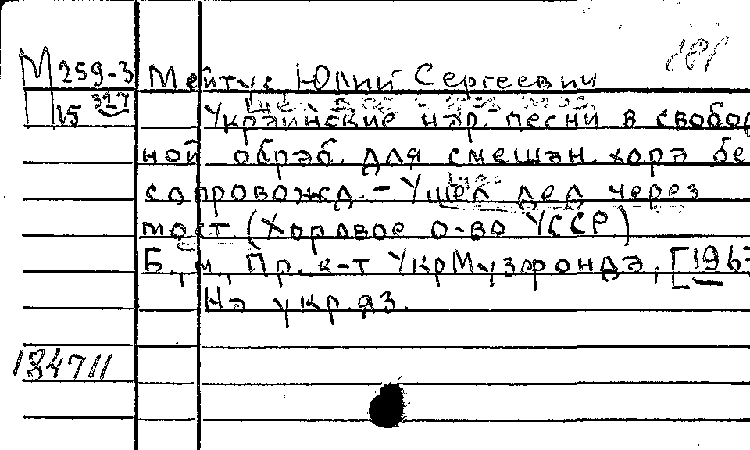 М 259-3 Мейтус, Юрий Сергеевич
15 327 Украинские нар. песни в свобод
ной обраб. для смешан. хора бе
сопровожд. – Ушел дед через
мост (Хоровое о-во УССР)
Б.м., Пр. к-т УкрМузфонда, [196
На укр. яз.
184711